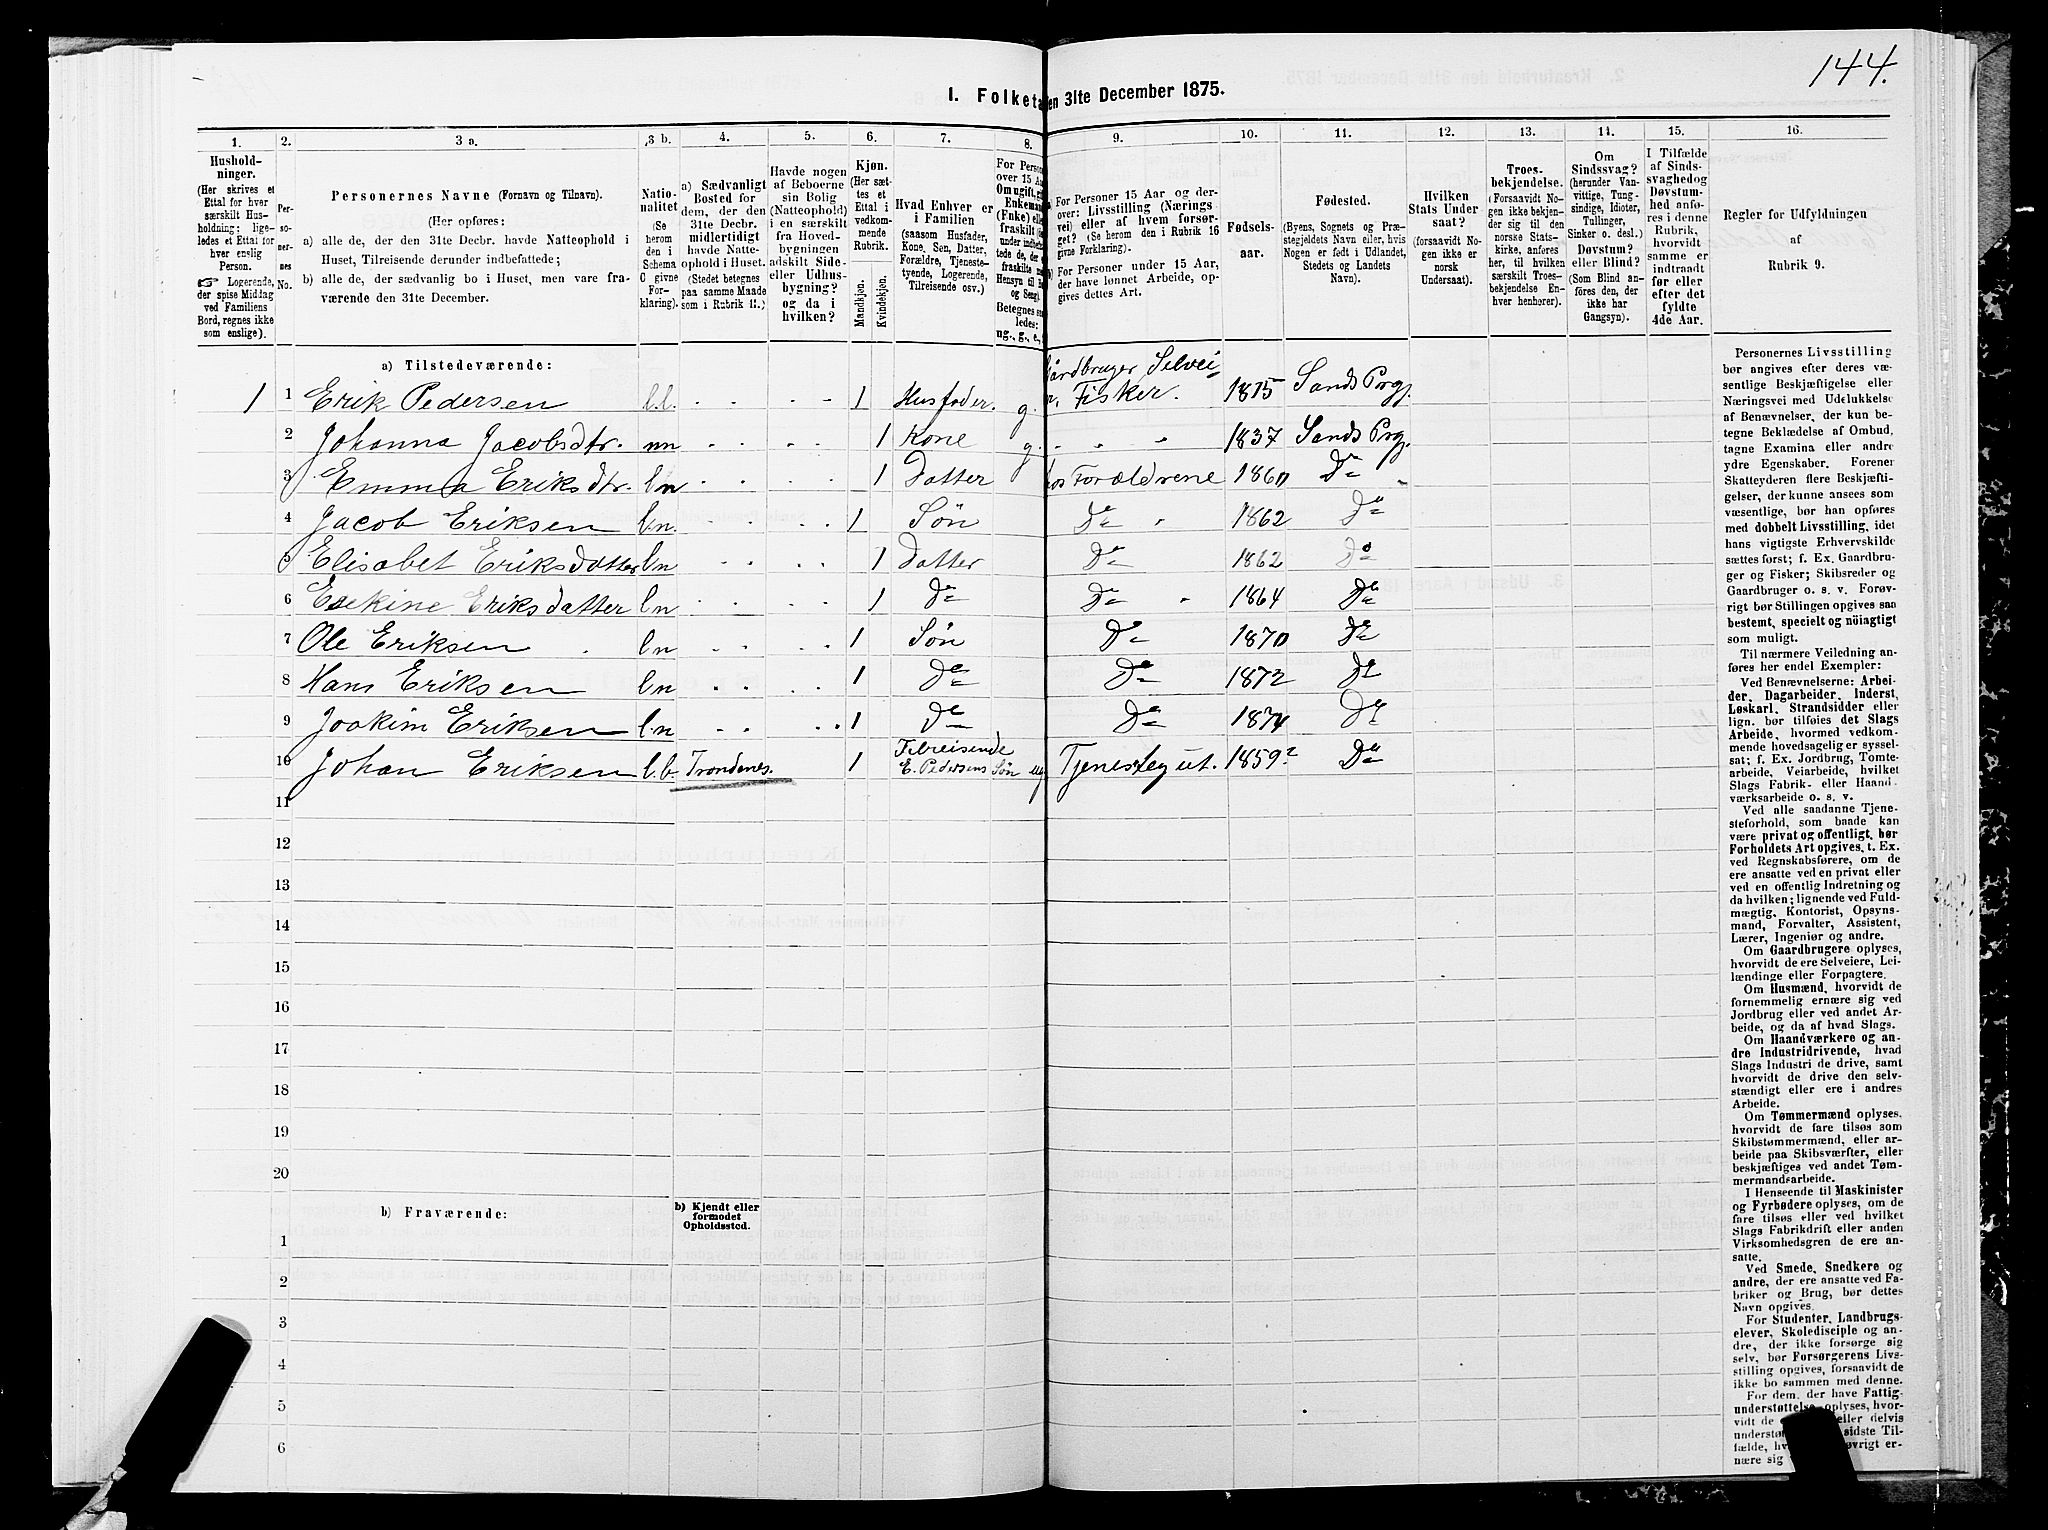 144.
I. Folketa
en 31te December 1875.
1. 2. 3 a. 3 b. 4. 5. 6. 7. 8. 9. 10. 11. 12. 13. 14. 15. 16.
Hushold-
ninger.
(Her skrives et
Ettal for hver
særskilt Hus-
holdning; lige-
ledes et Ettal for
hver enslig
Person.
☞ Logerende,
der spise Middag
ved Familiens
Bord, regnes ikke
som enslige).
Per-
so-
ner-
nes
No.
Personernes Navne (Fornavn og Tilnavn).
(Her opføres:
a) alle de, der den 31te Decbr. havde Natteophold i
Huset, Tilreisende derunder indbefattede;
b) alle de, der sædvanlig bo i Huset, men vare fra-
værende den 31te December.
Natio-
nalitet
(Se
herom
den i
Schema
C givne
For-
klaring).
a) Sædvanligt
Bosted for
dem, der den
31te Decbr.
midlertidigt
havde Natte-
ophold i Huset.
(Stedet betegnes
paa samme Maade
som i Rubrik 11.)
Havde nogen
af Beboerne
sin Bolig
(Natteophold)
i en særskilt
fra Hoved-
bygningen
adskilt Side-
eller Udhus-
bygning?
og da i
hvilken?
Kjøn.
(Her sæt-
tes et
Ettal i
vedkom-
mende
Rubrik.
Mandkjøn.
Kvindekjøn.
Hvad Enhver er
i Familien
(saasom Husfader,
Kone, Søn, Datter,
Forældre, Tjeneste-
tyende, Logerende,
Tilreisende osv.)
For Person
over 15 Aa
Om ugift, gif
Enkeman
(Fnke) elle
fraskilt
Betegnes saa-
ledes:
ug., g., e.,
For Personer 15 Aar og der-
over: Livsstilling (Nærings
vei) eller af hvem forsør-
get? (Se herom den i Rubrik 16
givne Forklaring).
For Personer under 15 Aar,
der have lønnet Arbeide, op-
gives dettes Art.
Fødsels-
aar.
Fødested.
(Byens, Sognets og Præ-
stegjeldets Navn eller, hvis
Nogen er født i Udlandet,
Stedets og Landets
Navn).
Hvilken
Stats Under
saat?
(forsaavidt No-
gen ikke er
norsk
Undersaat).
Troes-
bekjendelse.
(Forsaavidt No-
gen ikke bekjen-
der sig til den
norske Stats-
kirke, anføres
her, til hvilken
særskilt Troes-
bekjendelse En-
hver henhører).
Om
Sindssvag?
(herunder Van-
vittige, Tung-
sindige, Idioter,
Tullinger,
Sinker o. desl.)
Døvstum?
eller Blind?
(Som Blind an-
føres den, der
ikke har
Gangsyn).
I Tilfælde
af Sinds-
svaghed og
Døvstum-
hed anfø-
res i denne
Rubrik,
hvorvidt
samme er
indtraadt
før eller
efter det
fyldte
4de Aar.
Regler for Udfyldningen
af
Rubrik 9.
a) Tilstedeværende:
1 1 Erik Pedersen l.l. 1 Husfader. g. årdbruger Selvei- Fisker. 1875 Sands Prgj.
2 Johanna Jacobsdtr. nn 1 Kone g. 1837 Sands Prgj.
3 Emma Eriksdtr. ln 1 Datter os Forældrene 1860 Do
4 Jacob Eriksen ln. 1 Søn Do 1862 Do
5 Elisabet Eriksdatter ln 1 Datter Do 1862 Do
6 Esekine Eriksdatter ln 1 Do Do 1864 Do
7 Ole Eriksen ln 1 Søn Do 1870 Do
8 Hans Eriksen ln 1 Do Do 1872 Do
9 Joakim Eriksen ln 1 Do Do 1874 Do
10 Johan Eriksen l.l. Trondenes. 1 Tilreisende E. Pedersens Søn ug Tjenesteg ut. 1859? Do
11
12
13
14
15
16
17
18
19
20
b) Fraværende:
b) Kjendt eller
formodet
Opholdssted.
1
2
3
4
5
6
Personernes Livsstilling
bør angives efter deres væ-
sentlige Beskjæftigelse eller
Næringsvei med Udelukkelse
af Benævnelser, der kun be-
tegne Beklædelse af Ombud,
tagne Examina eller andre
ydre Egenskaber. Forener
Skatteyderen flere Beskjæfti-
gelser, der kunne ansees som
væsentlige, bør han opføres
med dobbelt Livsstilling, idet
hans vigtigste Erhvervskilde
sættes først; f. Ex. Gaardbru-
ger og Fisker; Skibsreder og
Gaardbruger o. s. v. Forøv-
rigt bør Stillingen opgives saa
bestemt, specielt og nöiagtigt
som muligt.
Til nærmere Veiledning an-
føres her endel Exempler:
Ved Benævnelserne: Arbei-
der, Dagarbeider, Inderst,
Løskarl, Strandsidder eller
lign. bør tilføies det Slags
Arbeide, hvormed vedkom-
mende hovedsagelig er syssel-
sat; f. Ex. Jordbrug, Tomte-
arbeide, Veiarbeide, hvilket
Slags Fabrik- eller Haand-
værksarbeide o. s. v.
Ved alle saadanne Tjene-
steforhold, som baade kan
være privat og offentligt, bør
Forholdets Art opgives, t. Ex.
ved Regnskabsførere, om de
ere ansatte ved en privat eller
ved en offentlig Indretning og
da hvilken; lignende ved Fuld-
mægtig, Kontorist, Opsyns-
mand, Forvalter, Assistent,
Lærer, Ingeniør og andre.
Om Gaardbrugere oplyses,
hvorvidt de ere Selveiere, Lei-
lændinge eller Forpagtere.
Om Husmænd, hvorvidt de
fornemmelig ernære sig ved
Jordbrug eller ved andet Ar-
beide, og da af hvad Slags.
Om Haandværkere og an-
dre Industridrivende, hvad
Slags Industri de drive, samt
hvorvidt de drive den selv-
stændigt eller ere i andres
Arbeide.
Om Tømmermænd oplyses,
hvorvidt de fare tilsøs som
Skibstømmermænd, eller ar-
beide paa Skibsværfter, eller
beskjæftiges ved andet Tøm-
mermandsarbeide.
I Henseende til Maskinister
og Fyrbødere oplyses, om de
fare tilsøs eller ved hvilket
Slags Fabrikdrift eller anden
Virksomhedsgren de ere an-
satte.
Ved Smede, Snedkere og
andre, der ere ansatte ved Fa-
briker og Brug, bør dettes
Navn opgives.
For Studenter, Landbrugs-
elever, Skoledisciple og an-
dre, der ikke forsørge sig
selv, bør Forsørgerens Livs-
stilling opgives, forsaavidt de
ikke bo sammen med denne.
For dem, der have Fattig-
understøttelse, oplyses, hvor-
vidt de eller delvis
underst sidste Til-
fælde, hv øvrigt er-
nære sig